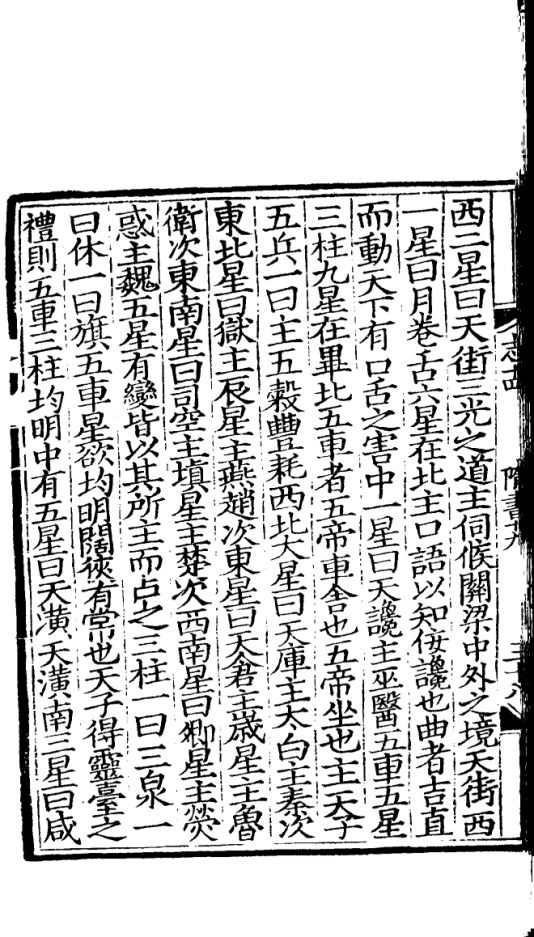 志十四 隋書十九 三十八
西二星曰天街三光之道主伺候關梁中外之境天街西
一星曰月卷舌六星在北主口語以知佞讒也曲者吉直
而動天下有口舌之害中一星曰天讒主巫醫五車五星
三柱九星在畢北五車者五帝車舍也五帝坐也主天子
五兵一曰主五穀豐耗西北大星曰天庫主太白主秦次
東北星曰獄主辰星主燕趙次東星曰天倉主歲星主魯
衛次東南星曰司空主填星主楚次西南星曰卿星主熒
惑主魏五星有變皆以其所主而占之三柱一曰三泉一
曰休一曰旗五車星欲均明闊狹有常也天子得靈臺之
禮則五車三柱均明中有五星曰天潢天潢南三星曰咸